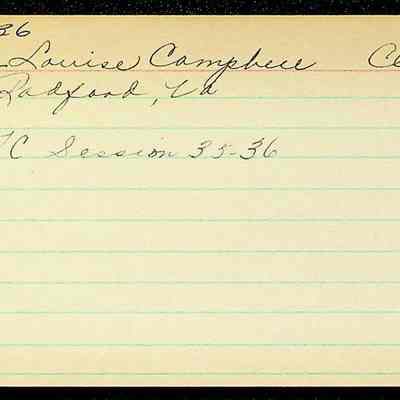 36
Louise Campbell Cl
Radford, Va
C Session 35-36